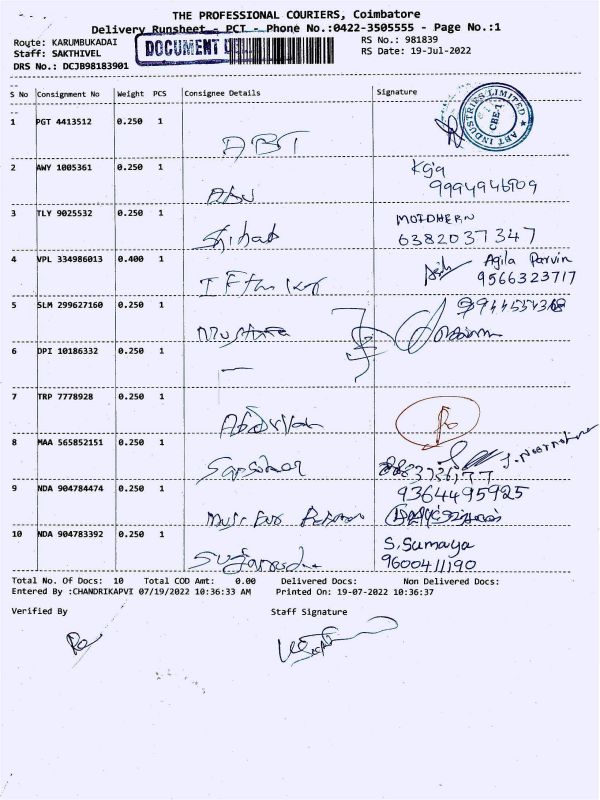 THE PROFESSIONAL COURIERS, Coimbatore
Delivery Runsheet - PCT - Phone No.:0422-3505555 - Page No.:1
Route: KARUMBUKADAI DOCUMENT RS No.: 981839
Staff: SAKTHIVEL RS Date: 19-Jul-2022
DRS No.: DCJB98183901
S No Consignment No Weight PCS Consignee Details Signature
1 PGT 4413512 0.250 1 ABT ABT INDUSTRIES LIMITED CBE-1
2 AWY 1005361 0.250 1 Abu
9994946909
3 TLY 9025532 0.250 1 Shihab
6382037347
4 VPL 334986013 0.400 1 Agila Parvin
9566323717
5 SLM 299627160 0.250 1
6 DPI 10186332 0.250 1
7 TRP 7778928 0.250 1
8 MAA 565852151 0.250 1
9 NDA 904784474 0.250 1 9364495925
10 NDA 904783392 0.250 1 S. Sumaya
9600411190
Total No. Of Docs: 10 Total COD Amt: 0.00 Delivered Docs: Non Delivered Docs:
Entered By :CHANDRIKAPVI 07/19/2022 10:36:33 AM Printed On: 19-07-2022 10:36:37
Verified By Staff Signature